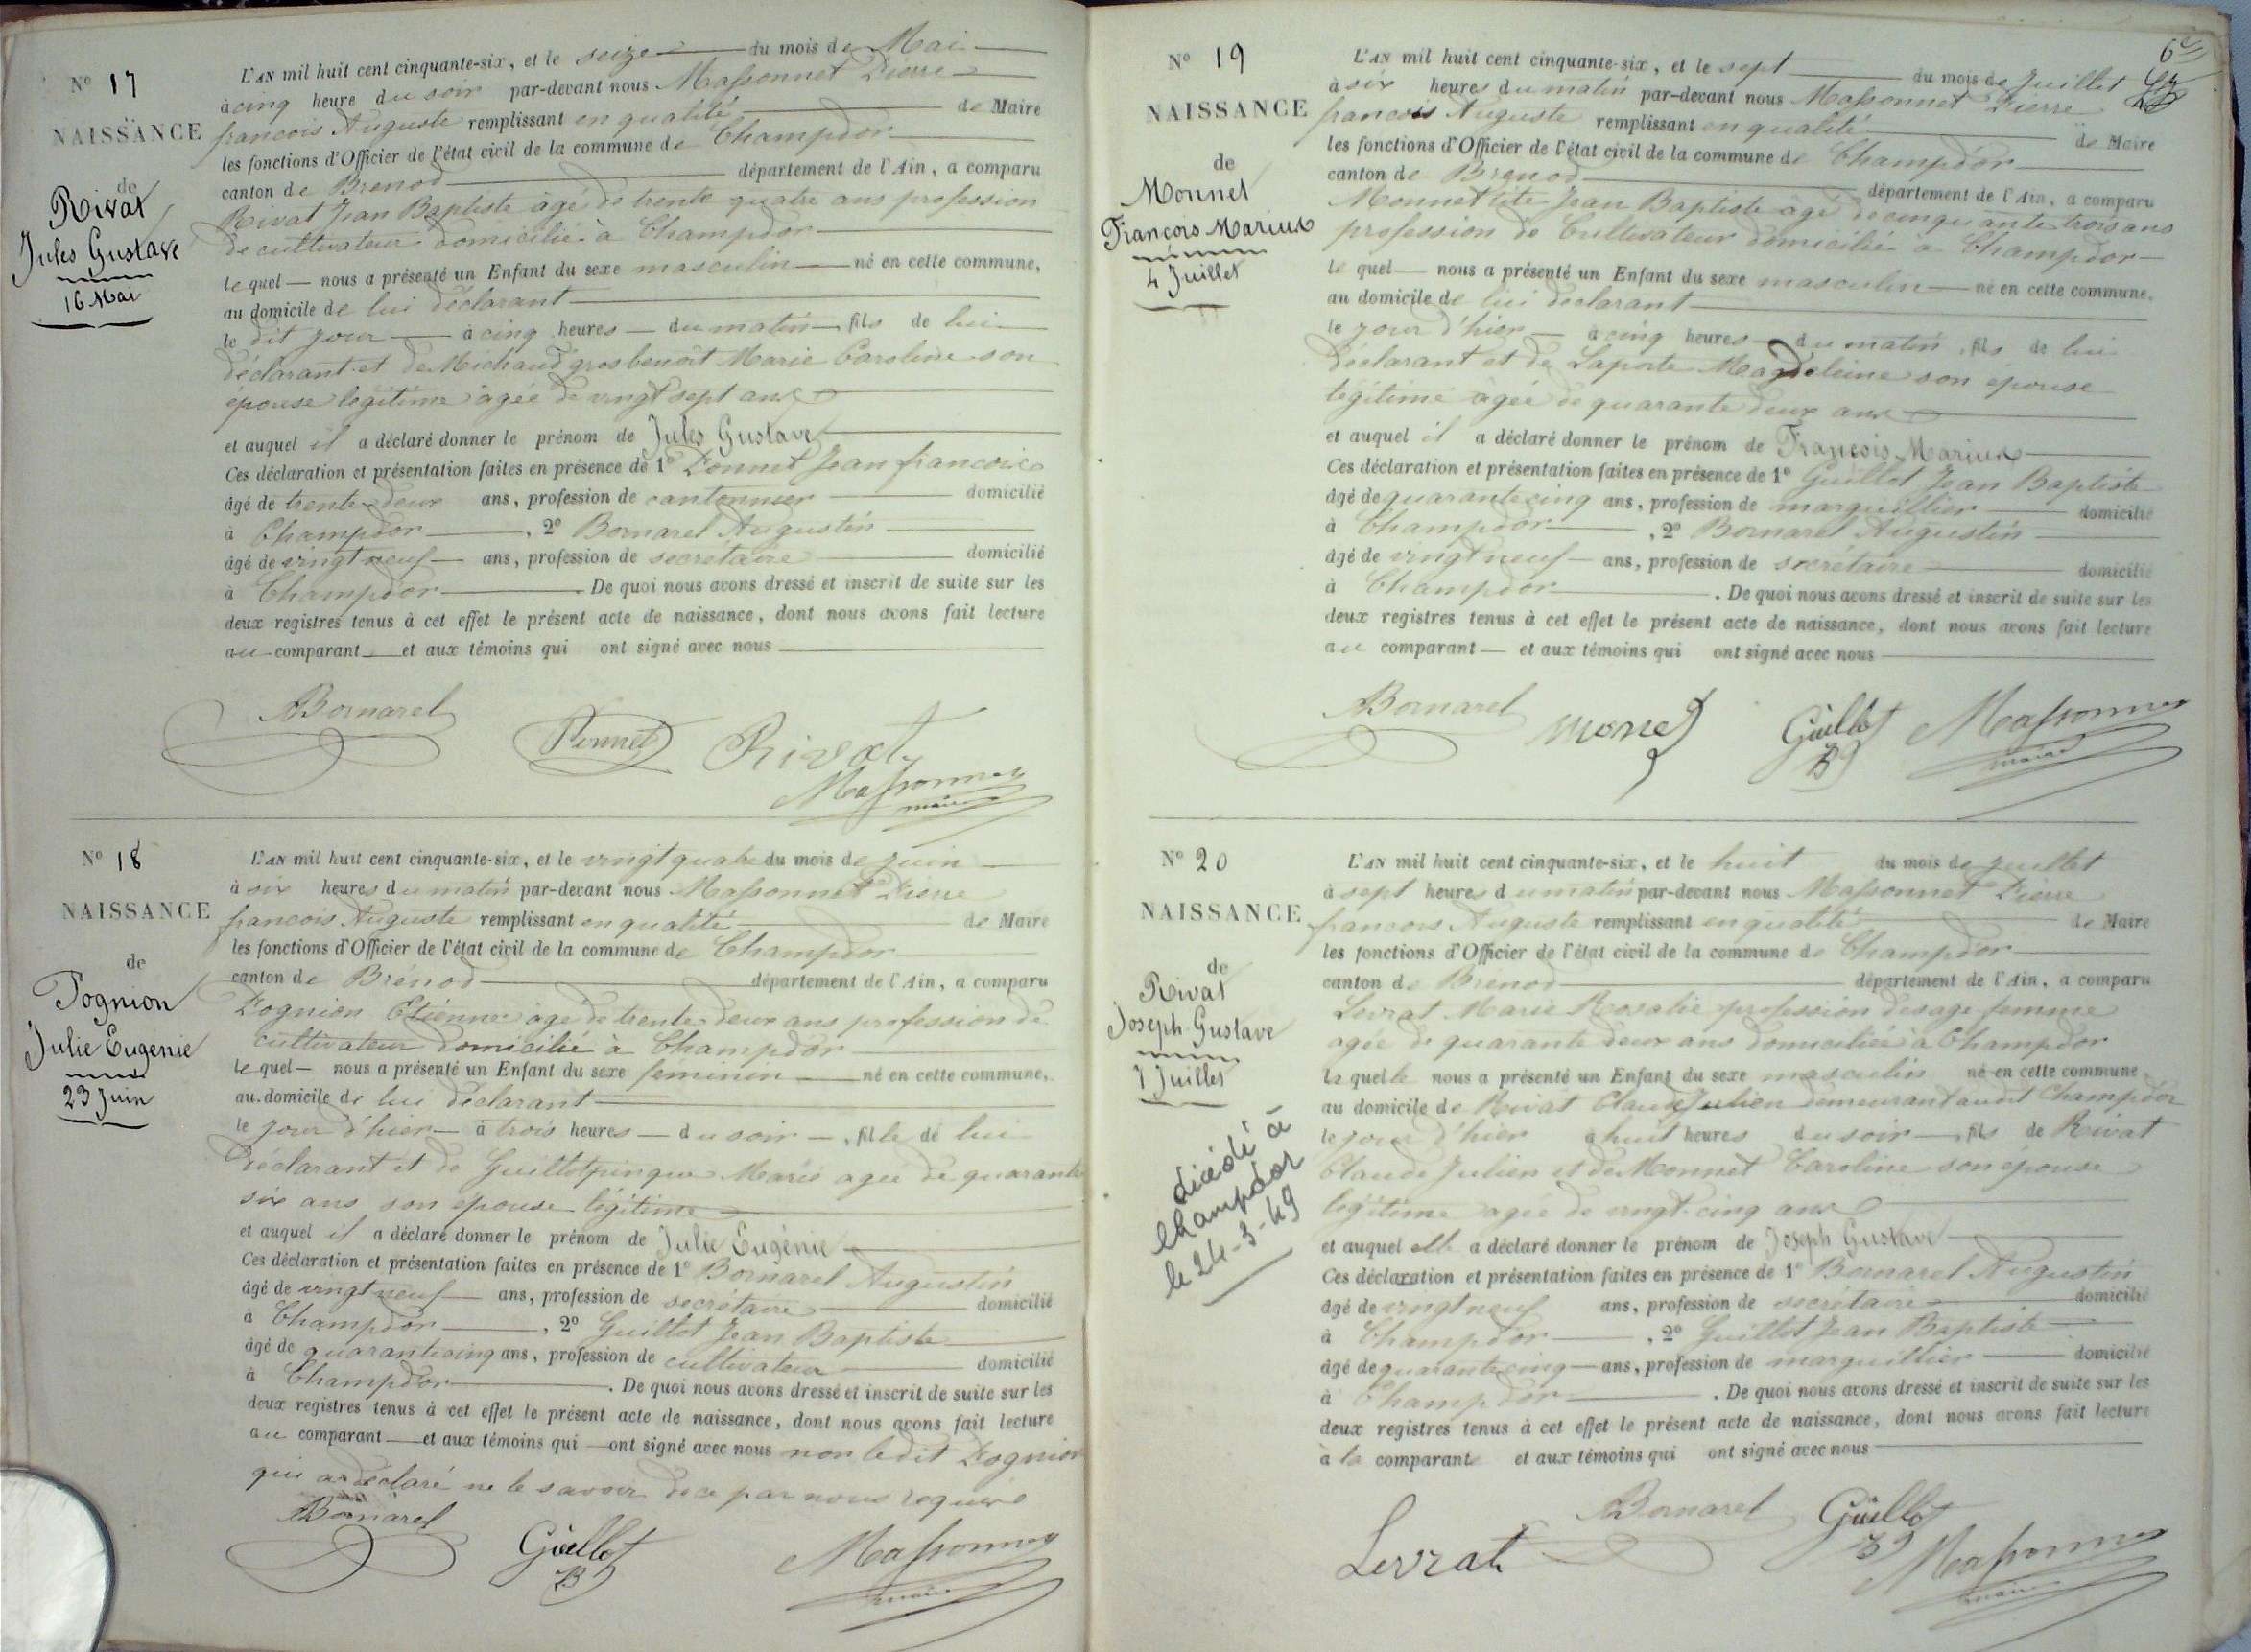 N° 17
NAISSANCE
de
Rivat
Jules Gustave
16 Mai
L'AN mil huit cent cinquante-six, et le seize du mois de Mai
à cinq heure du soir par-devant nous Massonnet Pierre
francois Auguste remplissant en qualité de Maire
les fonctions d'Officier de l'état civil de la commune de Champdor
canton de Brenod département de l'Ain, a comparu
Rivat Jean Baptiste âgé de trente quatre ans profession
de cultivateur domicilié à Champdor
le quel nous a présenté un Enfant du sexe masculin né en cette commune,
au domicile de lui déclarant
le dit jour à cinq heures du matin fils de lui
déclarant et de Michaud grosbenoit Marie Caroline son
épouse légitime âgée de vingt sept ans
et auquel il a déclaré donner le prénom de Jules Gustave
Ces déclaration et présentation faites en présence de 1° Ponnet Jean francois
âgé de trente deux ans, profession de cantonnier domicilié
à Champdor, 2° Bornarel Augustin
âgé de vingt neuf ans, profession de secrétaire domicilié
à Champdor. De quoi nous avons dressé et inscrit de suite sur les
deux registres tenus à cet effet le présent acte de naissance, dont nous avons fait lecture
au comparant et aux témoins qui ont signé avec nous
Bornarel Ponnet Rivat
Massonnet
maire
N° 18
NAISSANCE
de
Pognion
Julie Eugénie
23 Juin
L'AN mil huit cent cinquante-six, et le vingt quatre du mois de juin
à six heures du matin par-devant nous Massonnet Pierre
francois Auguste remplissant en qualité de Maire
les fonctions d'Officier de l'état civil de la commune de Champdor
canton de Brénod département de l'Ain, a comparu
Pognion Etienne âgé de trente deux ans profession de
cultivateur domicilié à Champdor
le quel nous a présenté un Enfant du sexe feminin né en cette commune,
au domicile de lui déclarant
le jour d'hier à trois heures du soir, fille de lui
déclarant et de Guillotpingue Marie agée de quarante
six ans son epouse légitime
et auquel il a déclaré donner le prénom de Julie Eugénie
Ces déclaration et présentation faites en présence de 1° Bornarel Augustin
âgé de vingt neuf ans, profession de secrétaire domicilié
à Champdor, 2° Guillot Jean Baptiste
âgé de quarante cinq ans, profession de cultivateur domicilié
à Champdor. De quoi nous avons dressé et inscrit de suite sur les
deux registres tenus à cet effet le présent acte de naissance, dont nous avons fait lecture
au comparant et aux témoins qui ont signé avec nous non ledit Pognion
qui a déclaré ne le savoir de ce par nous requis
Bornarel Guillot JB Massonnet
maire
N° 19
NAISSANCE
de
Monnet
François Marius
4 Juillet
L'AN mil huit cent cinquante-six, et le sept du mois de Juillet
à six heures du matin par-devant nous Massonnet Pierre
francois Auguste remplissant en qualité de Maire
les fonctions d'Officier de l'état civil de la commune de Champdor
canton de Brenod département de l'Ain, a comparu
Monnet tite Jean Baptiste âgé de cinquante trois ans
profession de Cultivateur domicilié à Champdor
le quel nous a présenté un Enfant du sexe masculin né en cette commune,
au domicile de lui déclarant
le jour d'hier à cinq heures du matin, fils de lui
déclarant et de Laporte Magdeleine son épouse
légitime âgée de quarante deux ans
et auquel il a déclaré donner le prénom de François Marius
Ces déclaration et présentation faites en présence de 1° Guillot Jean Baptiste
âgé de quarante cinq ans, profession de marguillier domicilié
à Champdor, 2° Bornarel Augustin
âgé de vingt neuf ans, profession de secrétaire domicilié
à Champdor. De quoi nous avons dressé et inscrit de suite sur les
deux registres tenus à cet effet le présent acte de naissance, dont nous avons fait lecture
au comparant et aux témoins qui ont signé avec nous
Bornarel Monet Guillot JB Massonnet
maire
N° 20
NAISSANCE
de
Rivat
Joseph Gustave
7 Juillet
décédé à
Champdor
le 24-3-49
L'AN mil huit cent cinquante-six, et le huit du mois de juillet
à sept heures du matin par-devant nous Massonnet Pierre
francois Auguste remplissant en qualité de Maire
les fonctions d'Officier de l'état civil de la commune de Champdor
canton de Brénod département de l'Ain, a comparu
Levrat Marie Rosalie profession de sage femme
agée de quarante deux ans domiciliée à Champdor
la quelle nous a présenté un Enfant du sexe masculin né en cette commune,
au domicile de Rivat Claude Julien demeurant audit Champdor
le jour d'hier à huit heures du soir, fils de Rivat
Claude Julien et de Monnet Caroline son épouse
légitime agée de vingt-cinq ans
et auquel elle a déclaré donner le prénom de Joseph Gustave
Ces déclaration et présentation faites en présence de 1° Bornarel Augustin
âgé de vingt neuf ans, profession de secrétaire domicilié
à Champdor, 2° Guillot Jean Baptiste
âgé de quarante cinq ans, profession de marguillier domicilié
à Champdor. De quoi nous avons dressé et inscrit de suite sur les
deux registres tenus à cet effet le présent acte de naissance, dont nous avons fait lecture
à la comparante et aux témoins qui ont signé avec nous
Levrat Bornarel Guillot JB Massonnet
maire